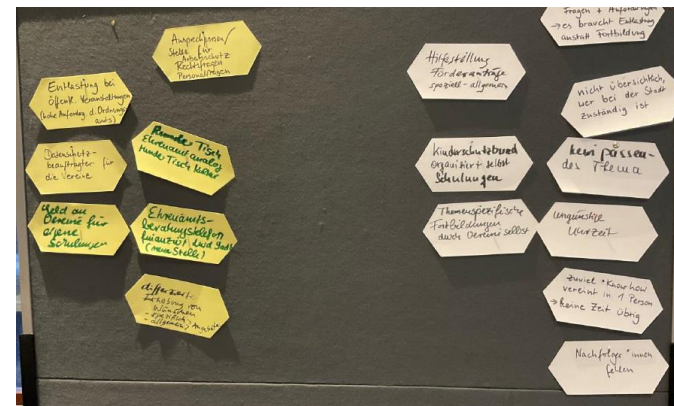 Ansprechperson/
Stelle für
Arbeitsschutz
Rechtsfragen
Personalfragen
Entlastung bei
öffentl. Veranstaltungen
(hohe Anforderg. d. Ordnungs-
amts)
Datenschutz-
beauftragter für
die Vereine
Runder Tisch
Ehrenamt analog
runder Tisch
Geld an
Vereine für
eigene
Schulungen
Ehrenamts-
beratungstelefon
finanziert durch Stadt
(neue Stelle)
differzierte
Erhebung von
Wünschen
- spezifisch
- allgemein
Hilfestellung
Förderanträge
speziell - allgemein
Kinderschutzbund
organisiert selbst
Schulungen
Themenspezifische
Fortbildungen
durch Vereine selbst
Fragen + Anforderungen
→ es braucht Entlastung
anstatt Fortbildung
nicht übersichtlich,
wer bei der Stadt
zuständig ist
kein passen-
des Thema
ungünstige
Uhrzeit
zuviel Knowhow
vereint in 1 Person
→ keine Zeit übrig
Nachfolger*innen
fehlen